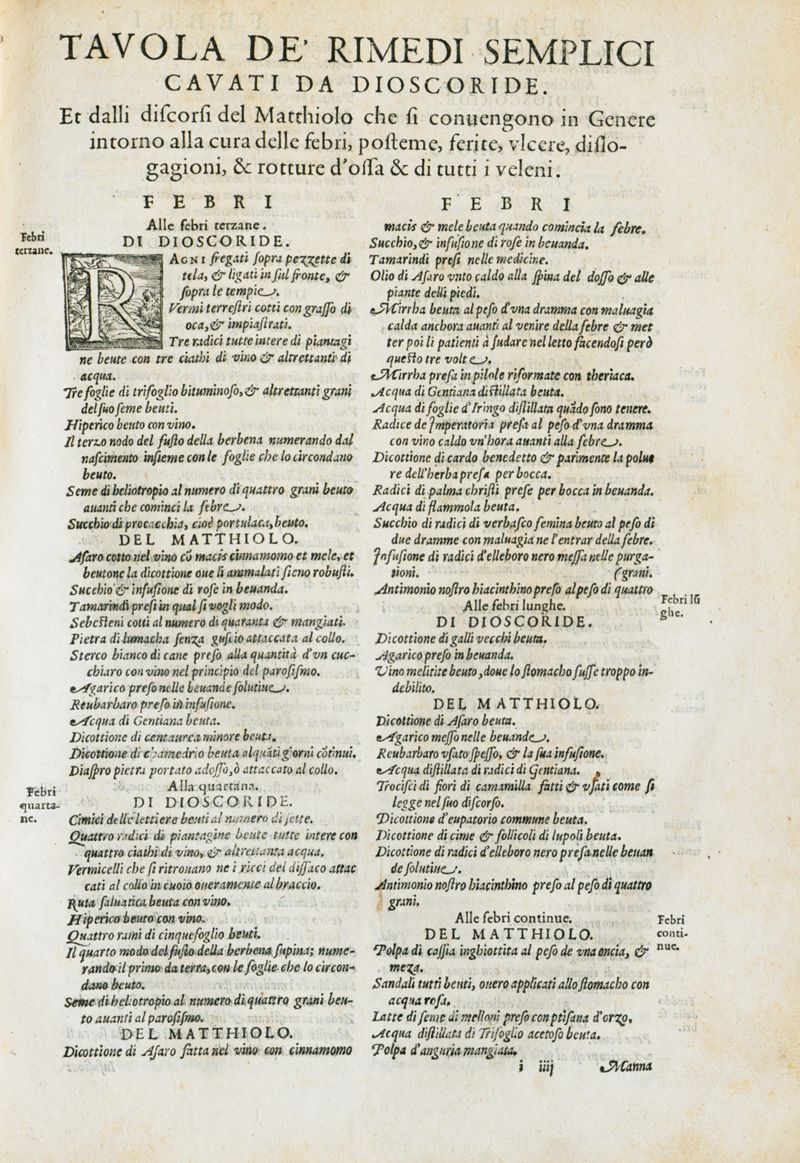 TAVOLA DE' RIMEDI SEMPLICI
CAVATI DA DIOSCORIDE.
Et dalli discorsi del Matthiolo che si conuengono in Genere
intorno alla cura delle febri, posteme, ferite, vlcere, dislo-
gagioni, & rotture d'ossa & di tutti i veleni.
FEBRI
Alle febri terzane.
Febri
terzane.
DI DIOSCORIDE.
RAGNI fregati sopra pezzette di
tela, & ligati in sul fronte, &
sopra le tempie.
Vermi terrestri cotti con grasso di
oca, & impiastrati.
Tre radici tutte intere di piantagi
ne beute con tre ciathi di vino & altrettanti di
acqua.
Tre foglie di trifoglio bituminoso, & altrettanti grani
del suo seme beuti.
Hiperico beuto con vino.
Il terzo nodo del fusto della berbena numerando dal
nascimento insieme con le foglie che lo circondano
beuto.
Seme di heliotropio al numero di quattro grani beuto
auanti che cominci la febre.
Succhio di procacchia, cioè portulaca, beuto.
DEL MATTHIOLO.
Asaro cotto nel vino cō macis cinnamomo et mele, et
beutone la dicottione oue li ammalati sieno robusti.
Succhio & infusione di rose in beuanda.
Tamarindi presi in qual si vogli modo.
Sebesteni cotti al numero di quaranta & mangiati.
Pietra di lumacha senza guscio attaccata al collo.
Sterco bianco di cane preso alla quantità d'vn cuc-
chiaro con vino nel principio del parosismo.
Agarico preso nelle beuande solutiue.
Reubarbaro preso in infusione.
Acqua di Gentiana beuta.
Dicottione di centaurea minore beuta.
Dicottione di chamedrio beuta alquāti giorni cōtinui.
Diaspro pietra portato adosso, ò attaccato al collo.
Alla quartana.
Febri
quarta-
ne.
DI DIOSCORIDE.
Cimici delle lettiere beuti al numero di sette.
Quattro radici di piantagine beute tutte intere con
quattro ciathi di vino, & altrettanta acqua.
Vermicelli che si ritrouano ne i ricci del dissaco attac
cati al collo in cuoio oueramente al braccio.
Ruta saluatica beuta con vino.
Hiperico beuto con vino.
Quattro rami di cinquefoglio beuti.
Il quarto modo del fusto della berbena supina; nume-
rando il primo da terra, con le foglie che lo circon-
dano beuto.
Seme di heliotropio al numero di quattro grani beu-
to auanti al parosismo.
DEL MATTHIOLO.
Dicottione di Asaro fatta nel vino con cinnamomo
FEBRI
macis & mele beuta quando comincia la febre.
Succhio, & infusione di rose in beuanda.
Tamarindi presi nelle medicine.
Olio di Asaro vnto caldo alla spina del dosso & alle
piante delli piedi.
Mirrha beuta al peso d'vna dramma con maluagia
calda anchora auanti al venire della febre & met
ter poi li patienti à sudare nel letto facendosi però
questo tre volte.
Mirrha presa in pilole riformate con theriaca.
Acqua di Gentiana distillata beuta.
Acqua di foglie d'Iringo distillata quādo sono tenere.
Radice de Imperatoria presa al peso d'vna dramma
con vino caldo vn'hora auanti alla febre.
Dicottione di cardo benedetto & parimente la polue
re dell'herba presa per bocca.
Radici di palma christi prese per bocca in beuanda.
Acqua di flammola beuta.
Succhio di radici di verbasco femina beuto al peso di
due dramme con maluagia ne l'entrar della febre.
Infusione di radici d'elleboro nero messa nelle purga-
tioni. (grani.
Antimonio nostro hiacinthino preso al peso di quattro
Alle febri lunghe.
Febri lū
ghe.
DI DIOSCORIDE.
Dicottione di galli vecchi beuta.
Agarico preso in beuanda.
Vino melitite beuto, doue lo stomacho fusse troppo in-
debilito.
DEL MATTHIOLO.
Dicottione di Asaro beuta.
Agarico messo nelle beuande.
Reubarbaro vsato spesso, & la sua infusione.
Acqua distillata di radici di Gentiana.
Trocisci di fiori di camamilla fatti & vsati come si
legge nel suo discorso.
Dicottione d'eupatorio commune beuta.
Dicottione di cime & follicoli di lupoli beuta.
Dicottione di radici d'elleboro nero presa nelle beuan
de solutiue.
Antimonio nostro hiacinthino preso al peso di quattro
grani.
Alle febri continue.
Febri
conti-
nue.
DEL MATTHIOLO.
Polpa di cassia inghiottita al peso de vna oncia, &
meza.
Sandali tutti beuti, ouero applicati allo stomacho con
acqua rosa.
Latte di seme di melloni preso con ptisana d'orzo.
Acqua distillata di Trifoglio acetoso beuta.
Polpa d'anguria mangiata.
i iiij
Manna